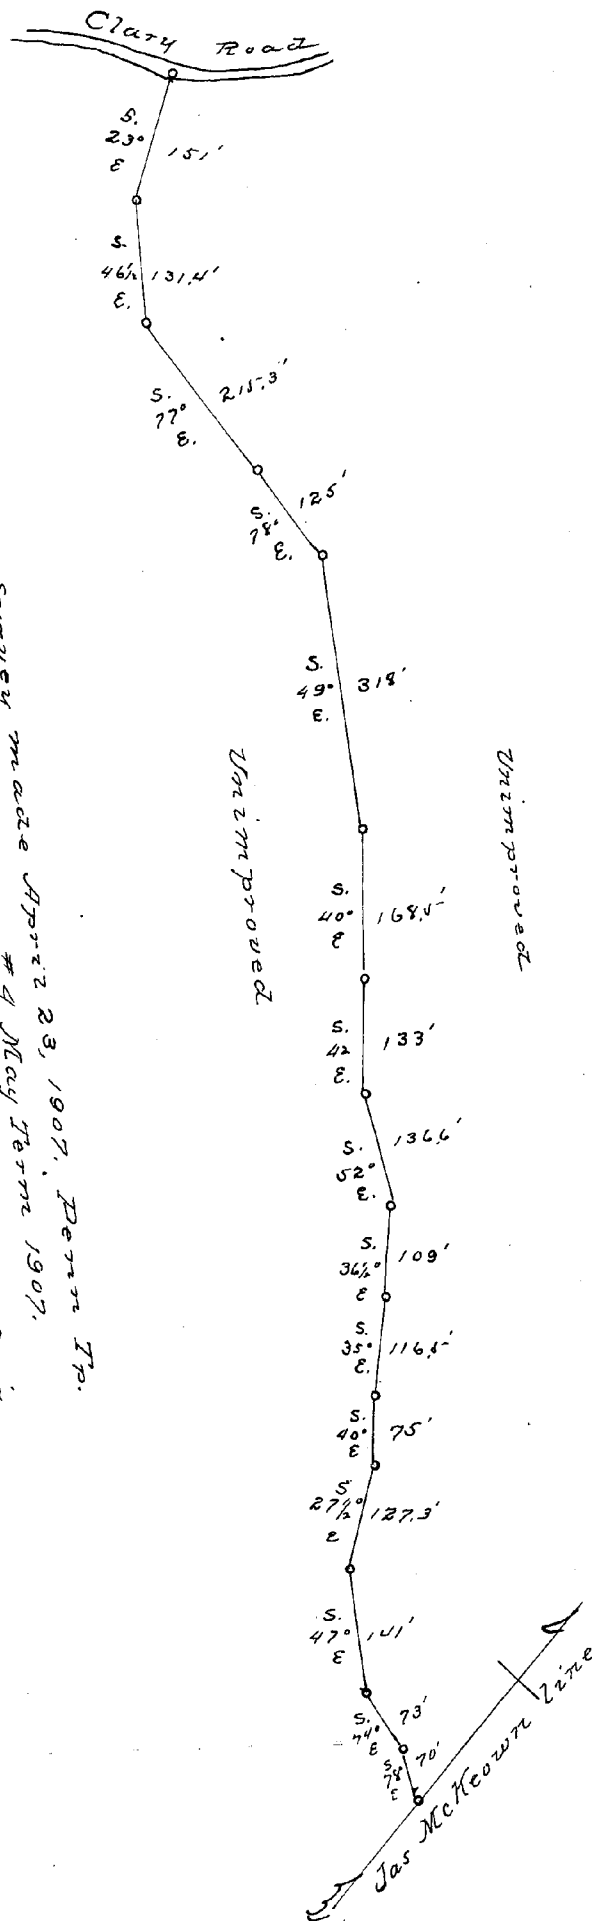 Clary Road
S.
23°
E
151'
S.
46½
E.
131.4'
S.
77°
E.
215.3'
S.
78°
E.
125'
S.
49°
E.
318'
Unimproved
Unimproved
S.
40°
E
168.5'
S.
42
E.
133'
S.
52°
E.
136.6'
S.
36½°
E
109'
S.
35°
E.
116.5'
S.
40°
E
75'
S.
27½°
E
127.3'
S.
47°
E
141'
S.
74°
E
73'
S
78°
E
70'
Jas McKeown line
Survey made April 23, 1907, Penn Tp.
#4 May Term 1907.